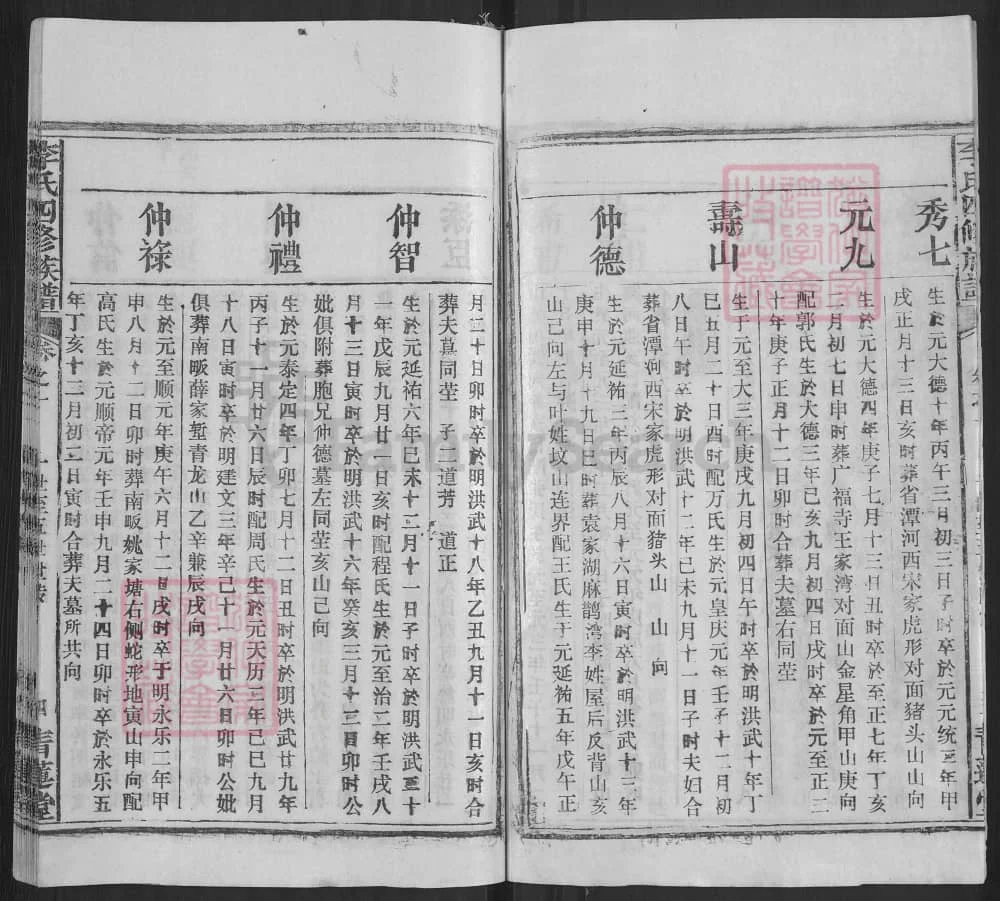 秀七
生於元大德十年丙午三月初三日子时卒於元元统三年甲
戌正月十三日亥时葬省潭河西宋家虎形对面猪头山山向
元九
生於元大德四年庚子七月十三日丑时卒於至正七年丁亥
二月初七日申时葬广福寺王家湾对面山金星角甲山庚向
配郭氏生於大德三年已亥九月初四日戌时卒於元至正二
十年庚子正月十二日卯时合葬夫墓右同茔
壽山
生于元至大三年庚戌九月初四日午时卒於明洪武十年丁
巳五月二十日酉时配万氏生於元皇庆元年壬子十二月初
八日午时卒於明洪武十二年已未九月十一日子时夫妇合
葬省潭河西宋家虎形对面猪头山 山 向
仲德
生於元延祐三年丙辰八月十六日寅时卒於明洪武十三年
庚申十一月十九日巳时葬袁家湖麻鹊湾李姓屋后反背山亥
山己向左与叶姓坟山连界配王氏生于元延祐五年戊午正
月二十日卯时卒於明洪武十八年乙丑九月十一日亥时合
葬夫墓同茔 子二道芳 道正
仲智
生於元延祐六年已未十二月十一日子时卒於明洪武三十
一年戊辰九月廿一日亥时配程氏生於元至治二年壬戌八
月十三日寅时卒於明洪武十六年癸亥三月十三日卯时公
妣俱附葬胞兄仲德墓左同茔亥山己向
仲禮
生於元泰定四年丁卯七月十二日丑时卒於明洪武廿九年
丙子十一月廿六日辰时配周氏生於元天历二年已巳九月
十八日寅时卒於明建文三年辛己十一月廿六日卯时公妣
俱葬南畈薛家堑青龙山乙辛兼辰戌向
仲祿
生於元至顺元年庚午六月十二日戌时卒于明永乐二年甲
申八月十二日卯时葬南畈姚家塘右侧蛇形地寅山申向配
高氏生於元顺帝元年壬申九月二十四日卯时卒於永乐五
年丁亥十二月初二日寅时合葬夫墓所共向
李氏四修族譜
卷之一
青蓮堂